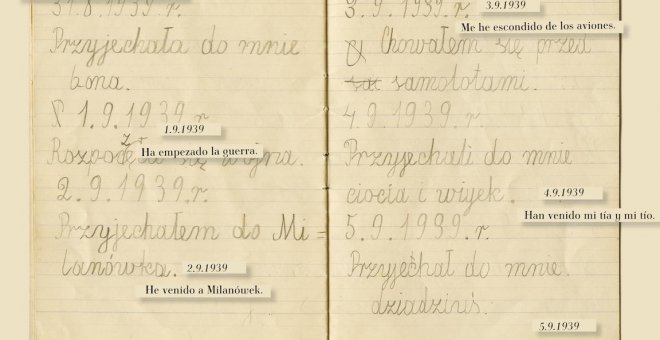 31.8.1939.r.
Przyjechała do mnie
bona.
1.9.1939.r
1.9.1939
Rozpoczęła się wojna.
Ha empezado la guerra.
2.9.1939.r.
Przyjechałem do Mi=
lanówka.
2.9.1939
He venido a Milanówek.
3.9.1939.r.
3.9.1939
Me he escondido de los aviones.
Chowałem się przed
samolotami.
4.9.1939.r.
Przyjechali do mnie
ciocia i wujek.
4.9.1939
Han venido mi tía y mi tío.
5.9.1939.r.
Przyjechał do mnie.
dziadziuś.
5.9.1939